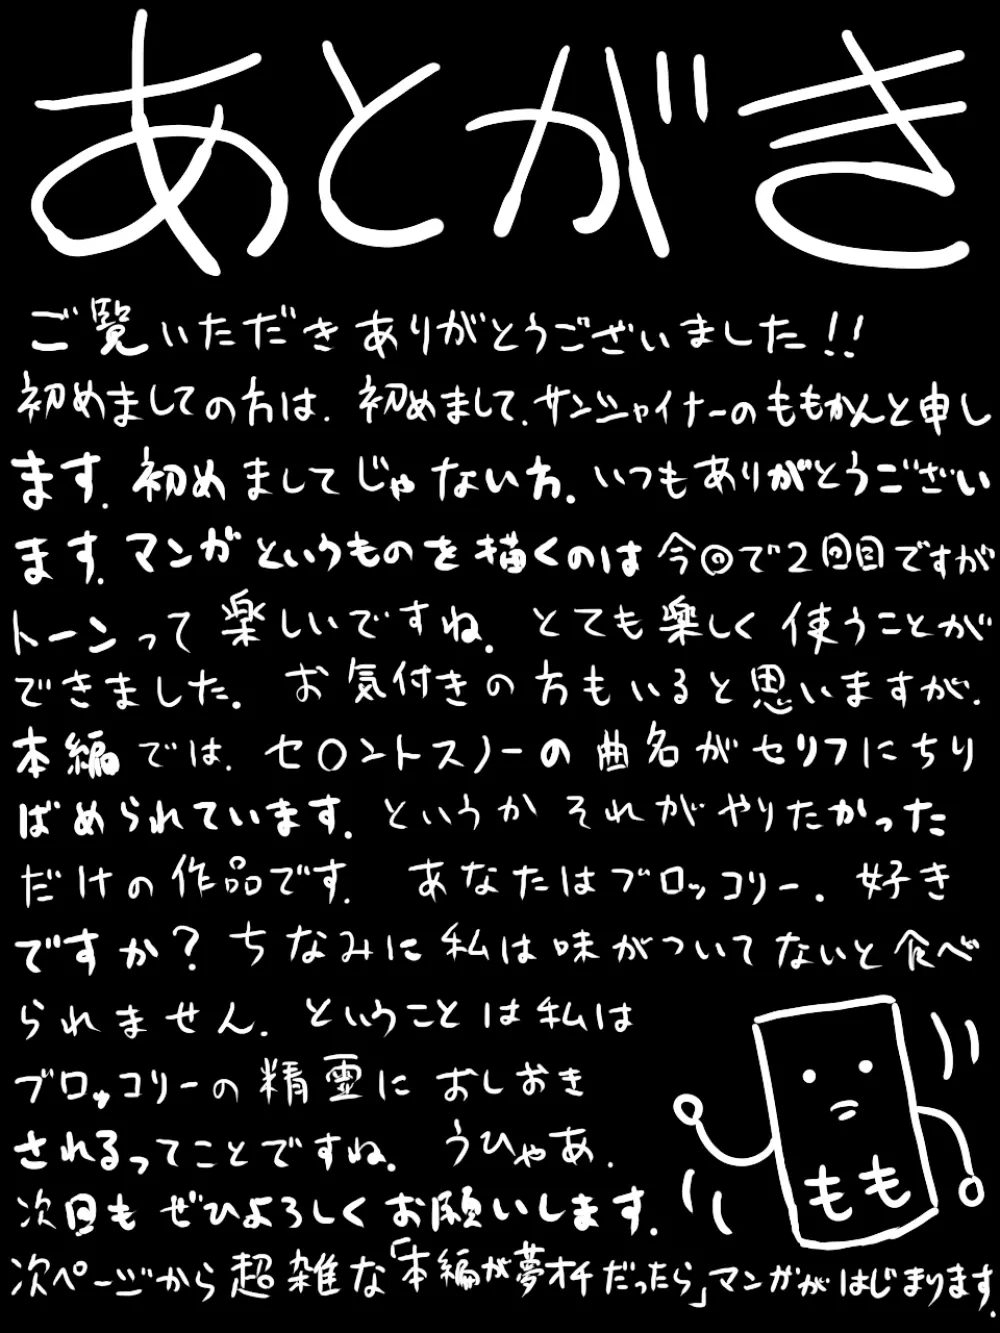 あとがき
ご覧いただきありがとうございました!!
初めましての方は、初めまして、サンシャイナーのももかんと申し
ます。初めましてじゃない方、いつもありがとうござい
ます。マンガというものを描くのは今回で2回目ですが
トーンって楽しいですね。とても楽しく使うことが
できました。お気付きの方もいると思いますが、
本編では、セ〇ントスノーの曲名がセリフにちり
ばめられています。というかそれがやりたかった
だけの作品です。あなたはブロッコリー、好き
ですか?ちなみに私は味がついてないと食べ
られません。ということは私は
ブロッコリーの精霊におしおき
されるってことですね。うひゃあ。
次回もぜひよろしくお願いします。
次ページから超雑な「本編が夢オチだったら」マンガがはじまります。
もも